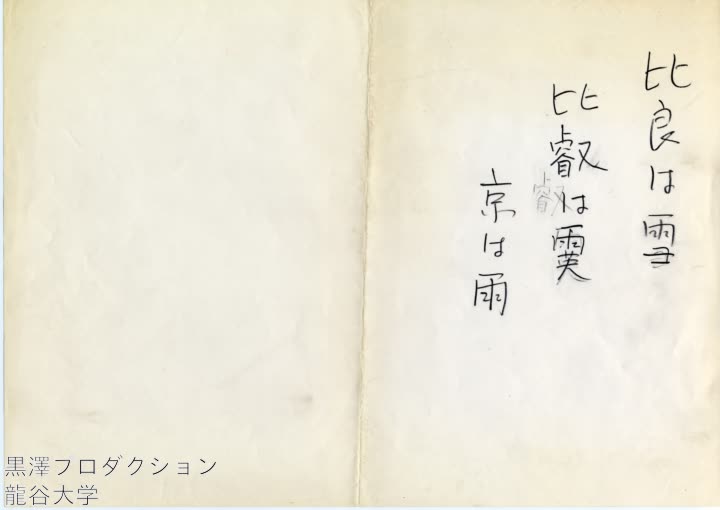 比良は雪
比叡は霙
叡
京は雨
黒澤フロダクション
龍谷大学